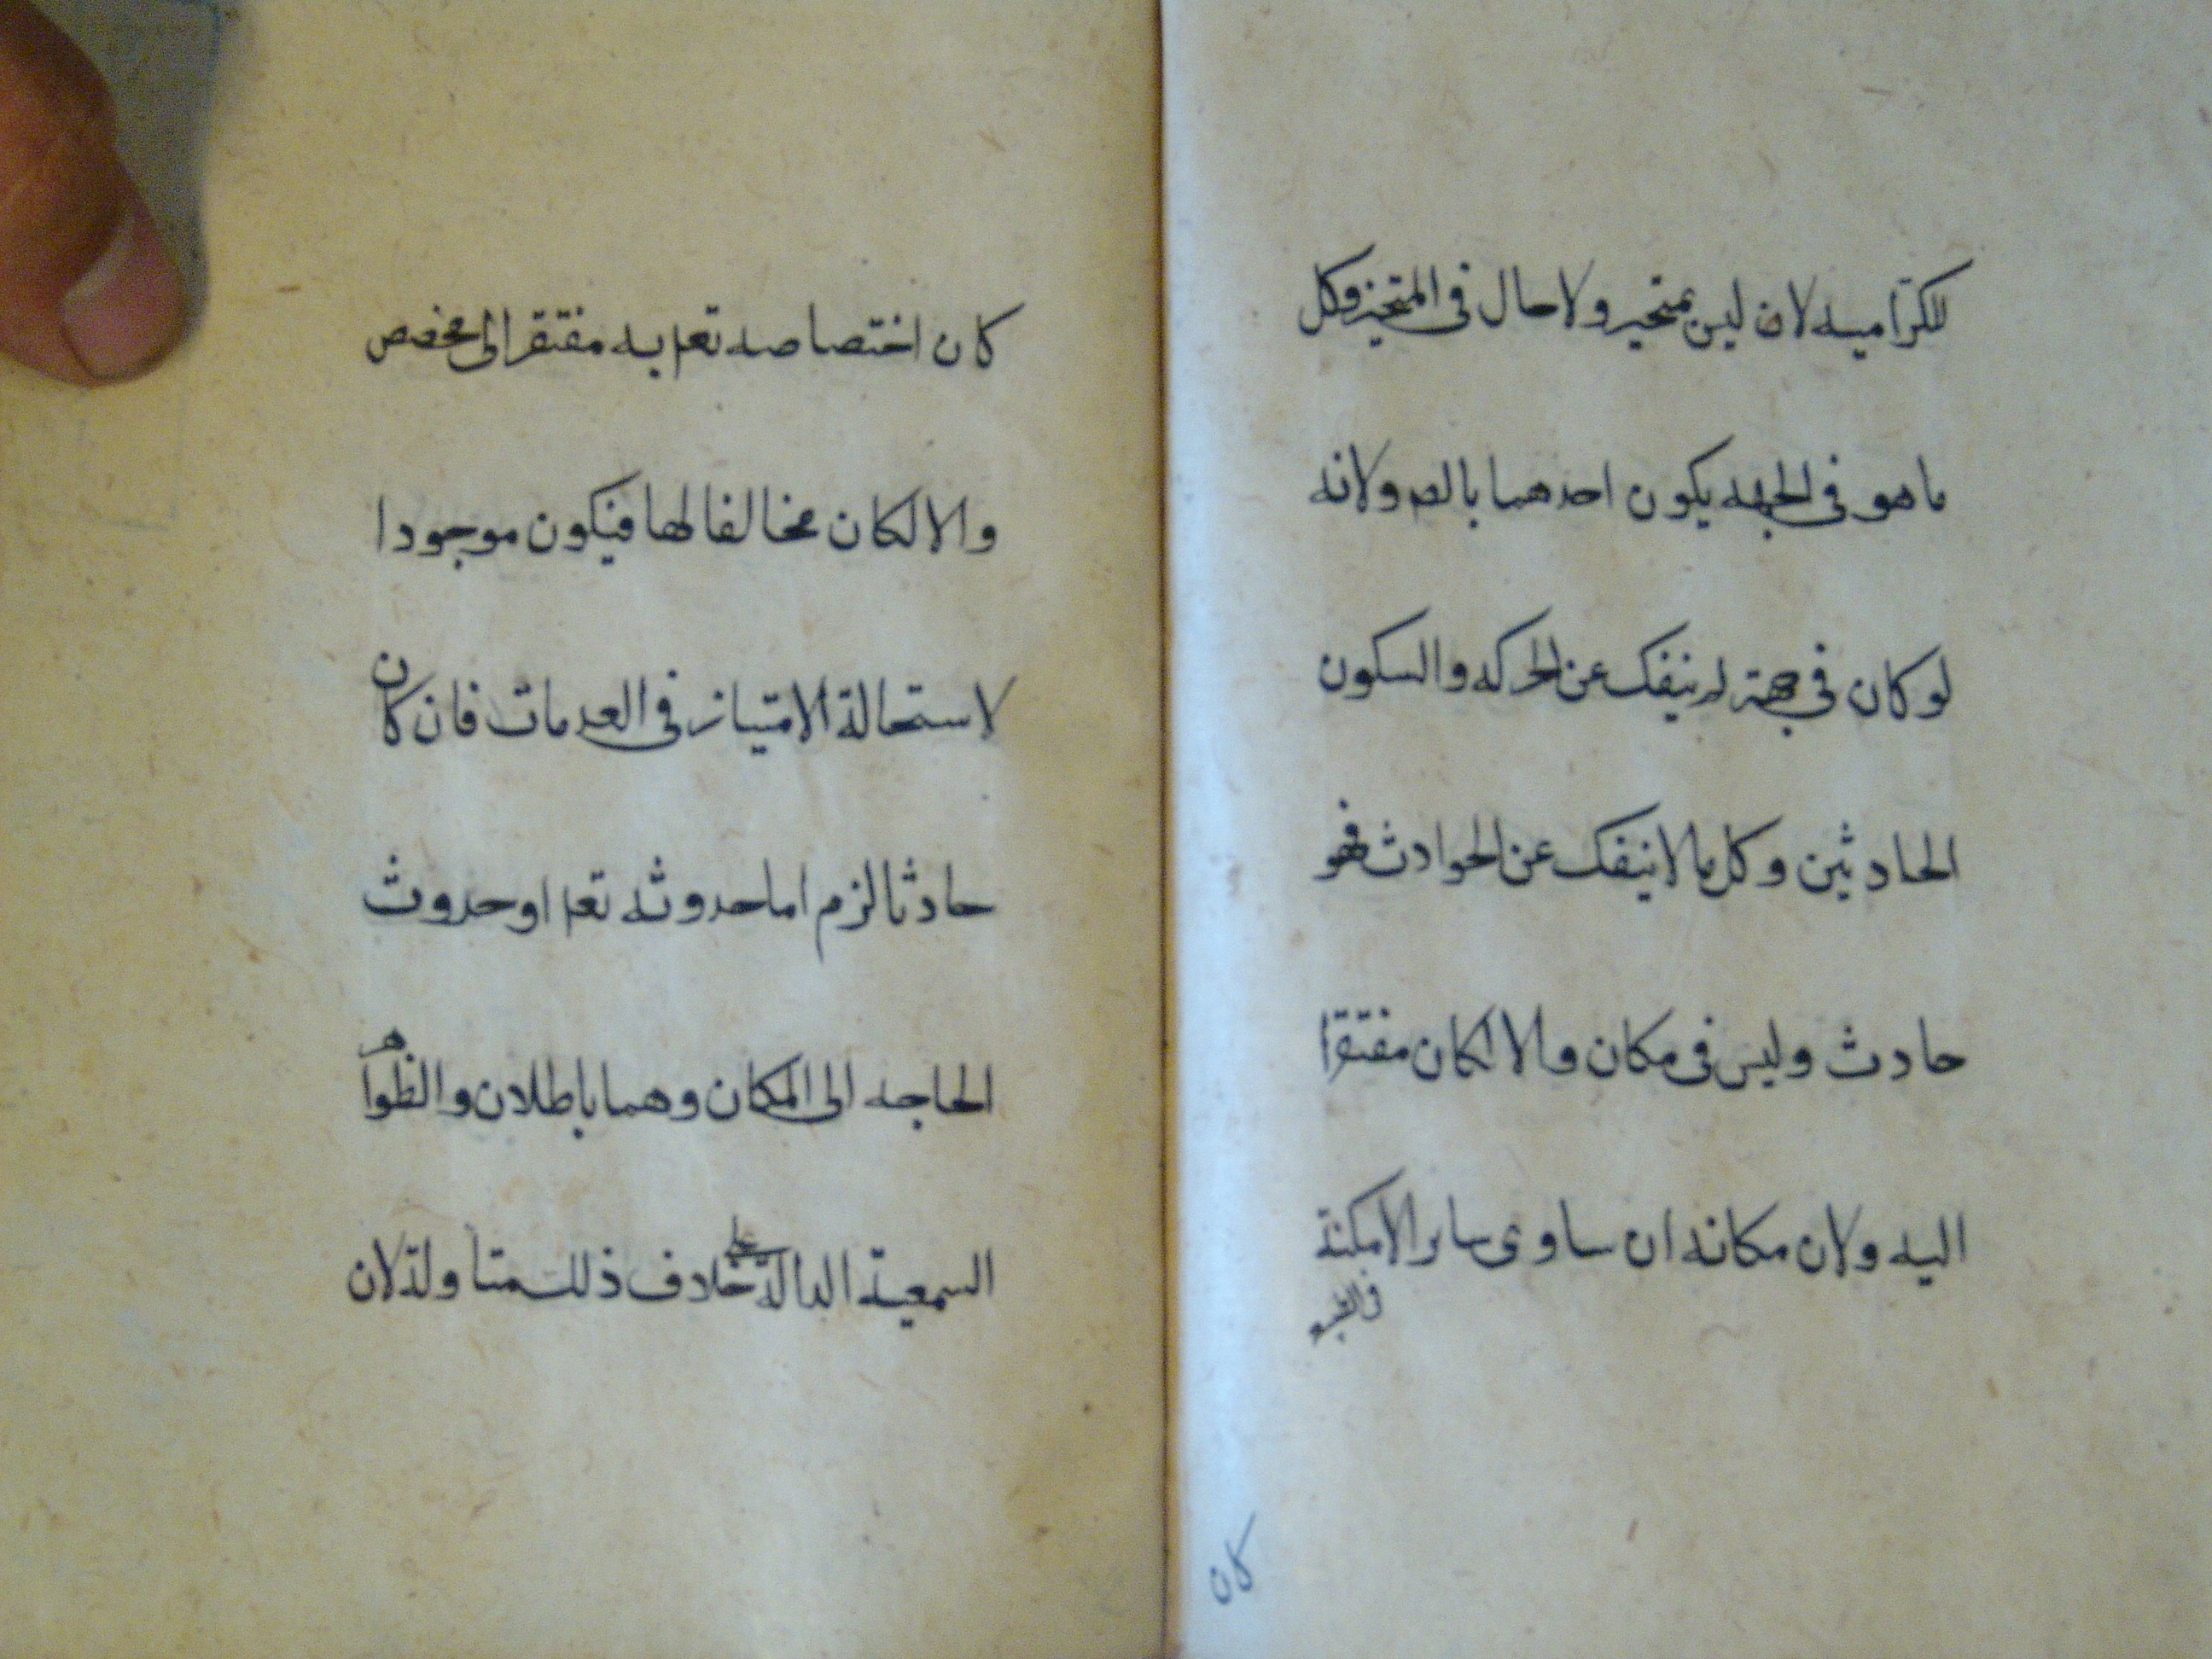 للكرّاميه لان ليس بمتحيز ولا حال فى المتحيز وكل
ما هو فى الجهه يكون احدهما بالضم ولانه
لو كان فى جهة لم ينفك عن الحركه والسكون
الحادثين وكل ما لا ينفك عن الحوادث فهو
حادث وليس فى مكان والا لكان مفتقرا
اليه ولان مكانه ان ساوى ساير الامكنة
كان
كان اختصاصه تعا به مفتقرا الى مخصص
والا لكان مخالفا لها فيكون موجودا
لاستحالة الامتياز فى العدمات فان كان
حادثا لزم اما حدوثه تعا او حدوث
الحاجه الى المكان وهما باطلان والظواهر
السمعية الدالة على خلاف ذلك متاولة لان